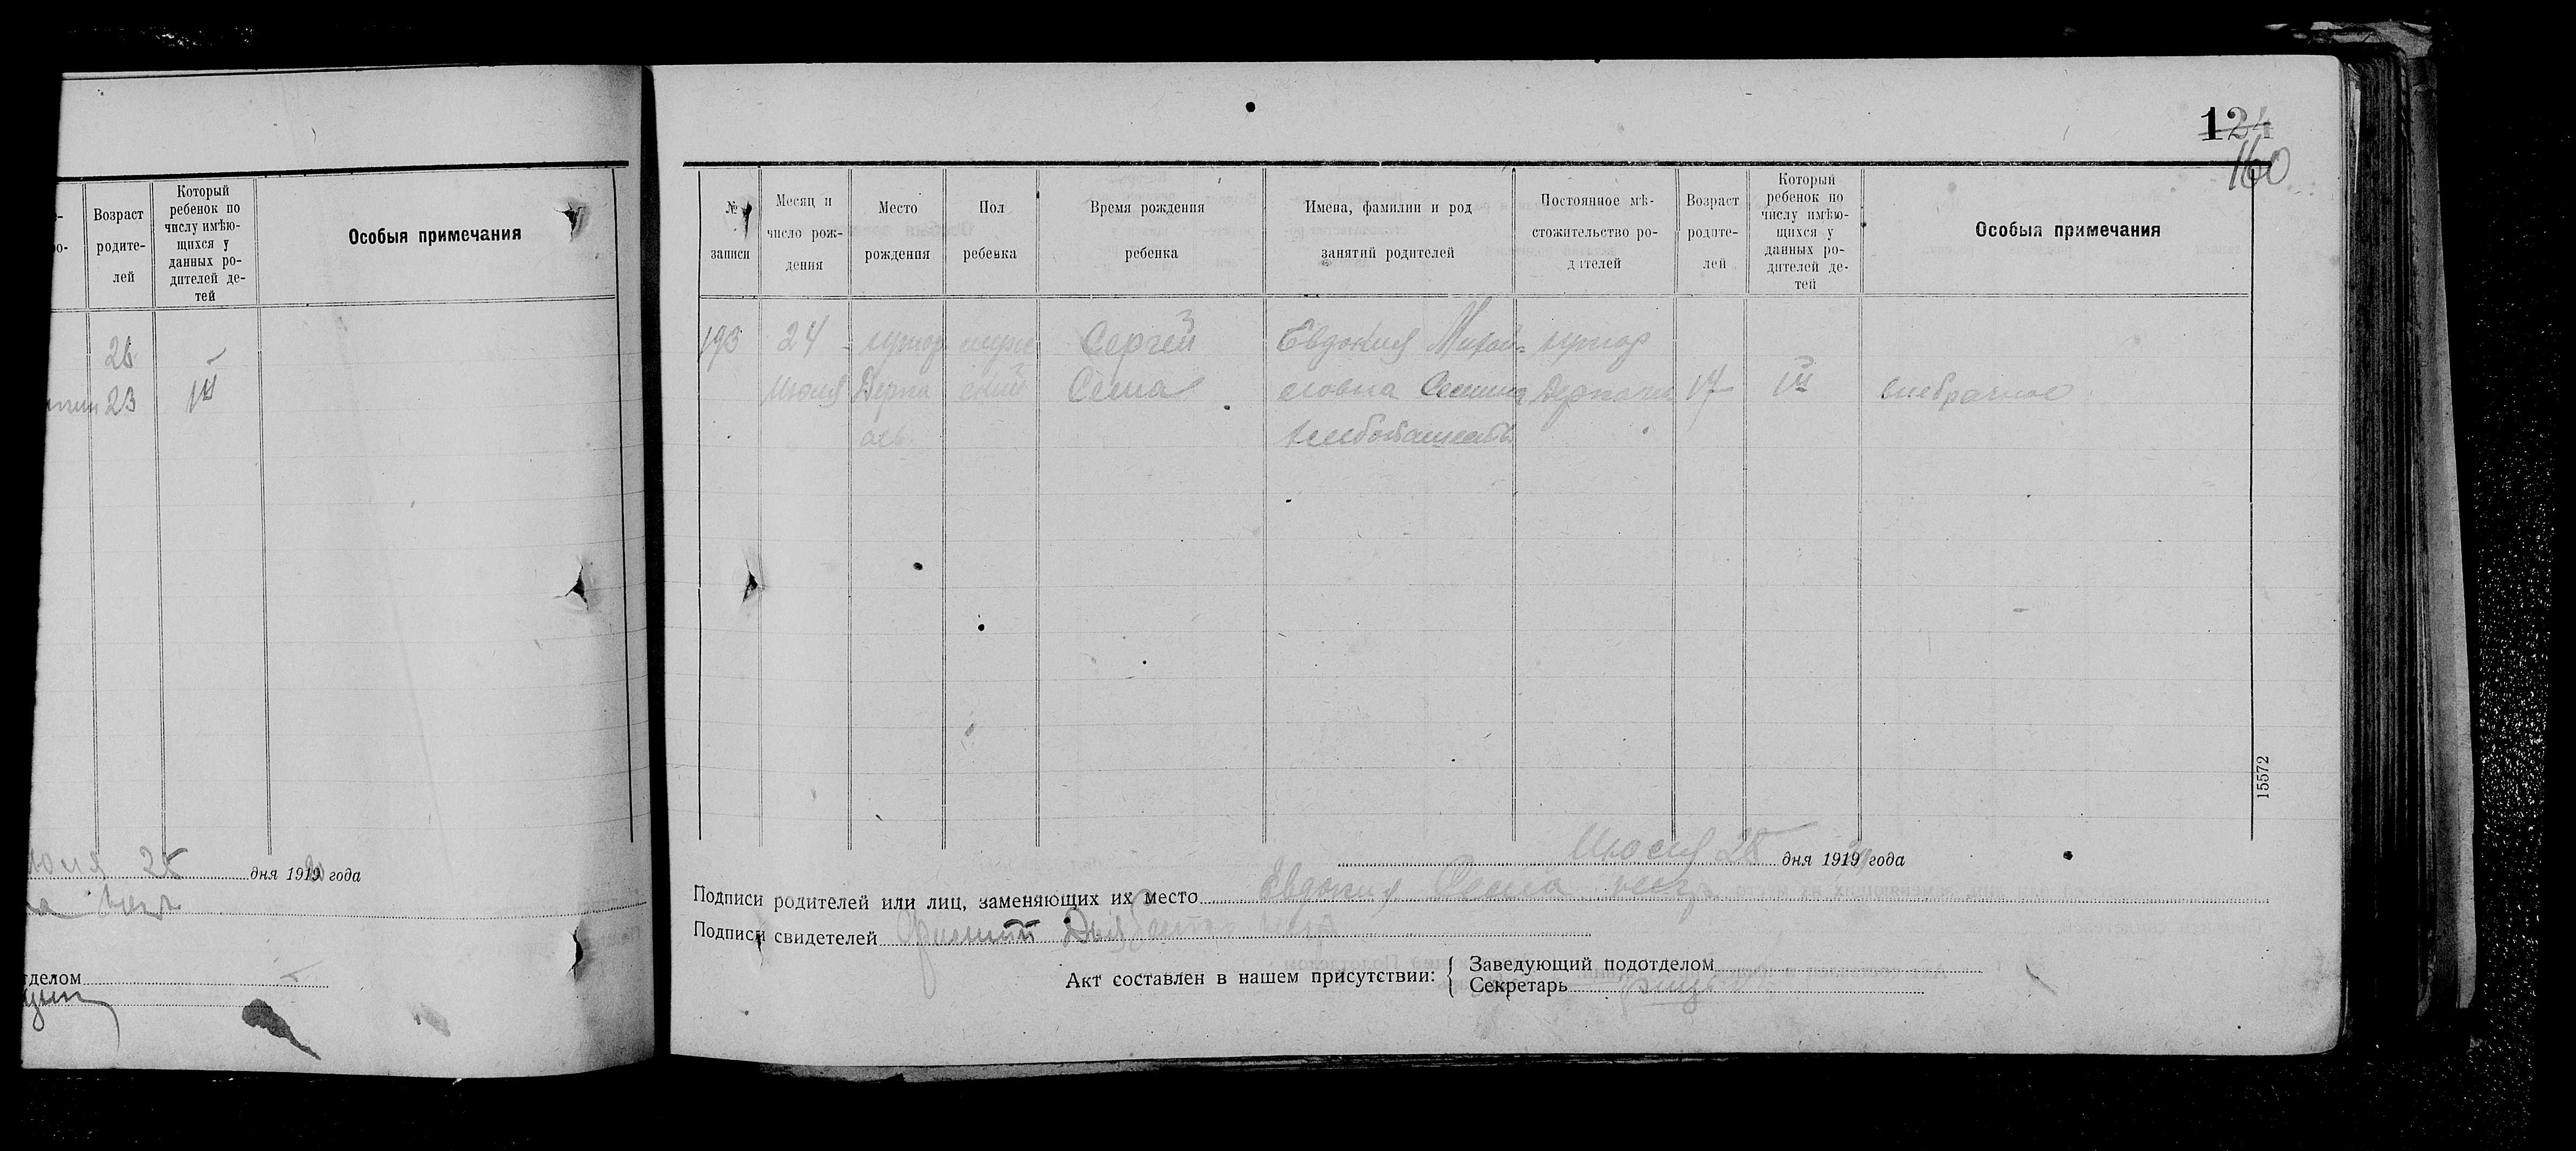 Возраст
родите-
лей
Который
ребенок по
числу имѣю-
щихся у
данных ро-
дителей де-
тей
Особыя примечания
26
23
1й
дня 1919 года
124
160
№
записи
Месяц и
число рож-
дения
Место
рождения
Пол
ребенка
Время рождения
ребенка
Имена, фамилии и род
занятий родителей
Постоянное мѣ-
стожительство ро-
дителей
Возраст
родите-
лей
Который
ребенок по
числу имѣю-
щихся у
данных ро-
дителей де-
тей
Особыя примечания
193
24
Июля
хутор
Дерка
чев
муже
ский
Сергей
Сема
Евдокия Михай-
ловна Семина
хлебопашество
хутор
Деркачев
17
1й
внебрачное
15572
Июля 28 дня 1919 года
Подписи родителей или лиц, заменяющих их место Евдокия Сема негр
Подписи свидетелей
Акт составлен в нашем присутствии:
Заведующий подотделом
Секретарь